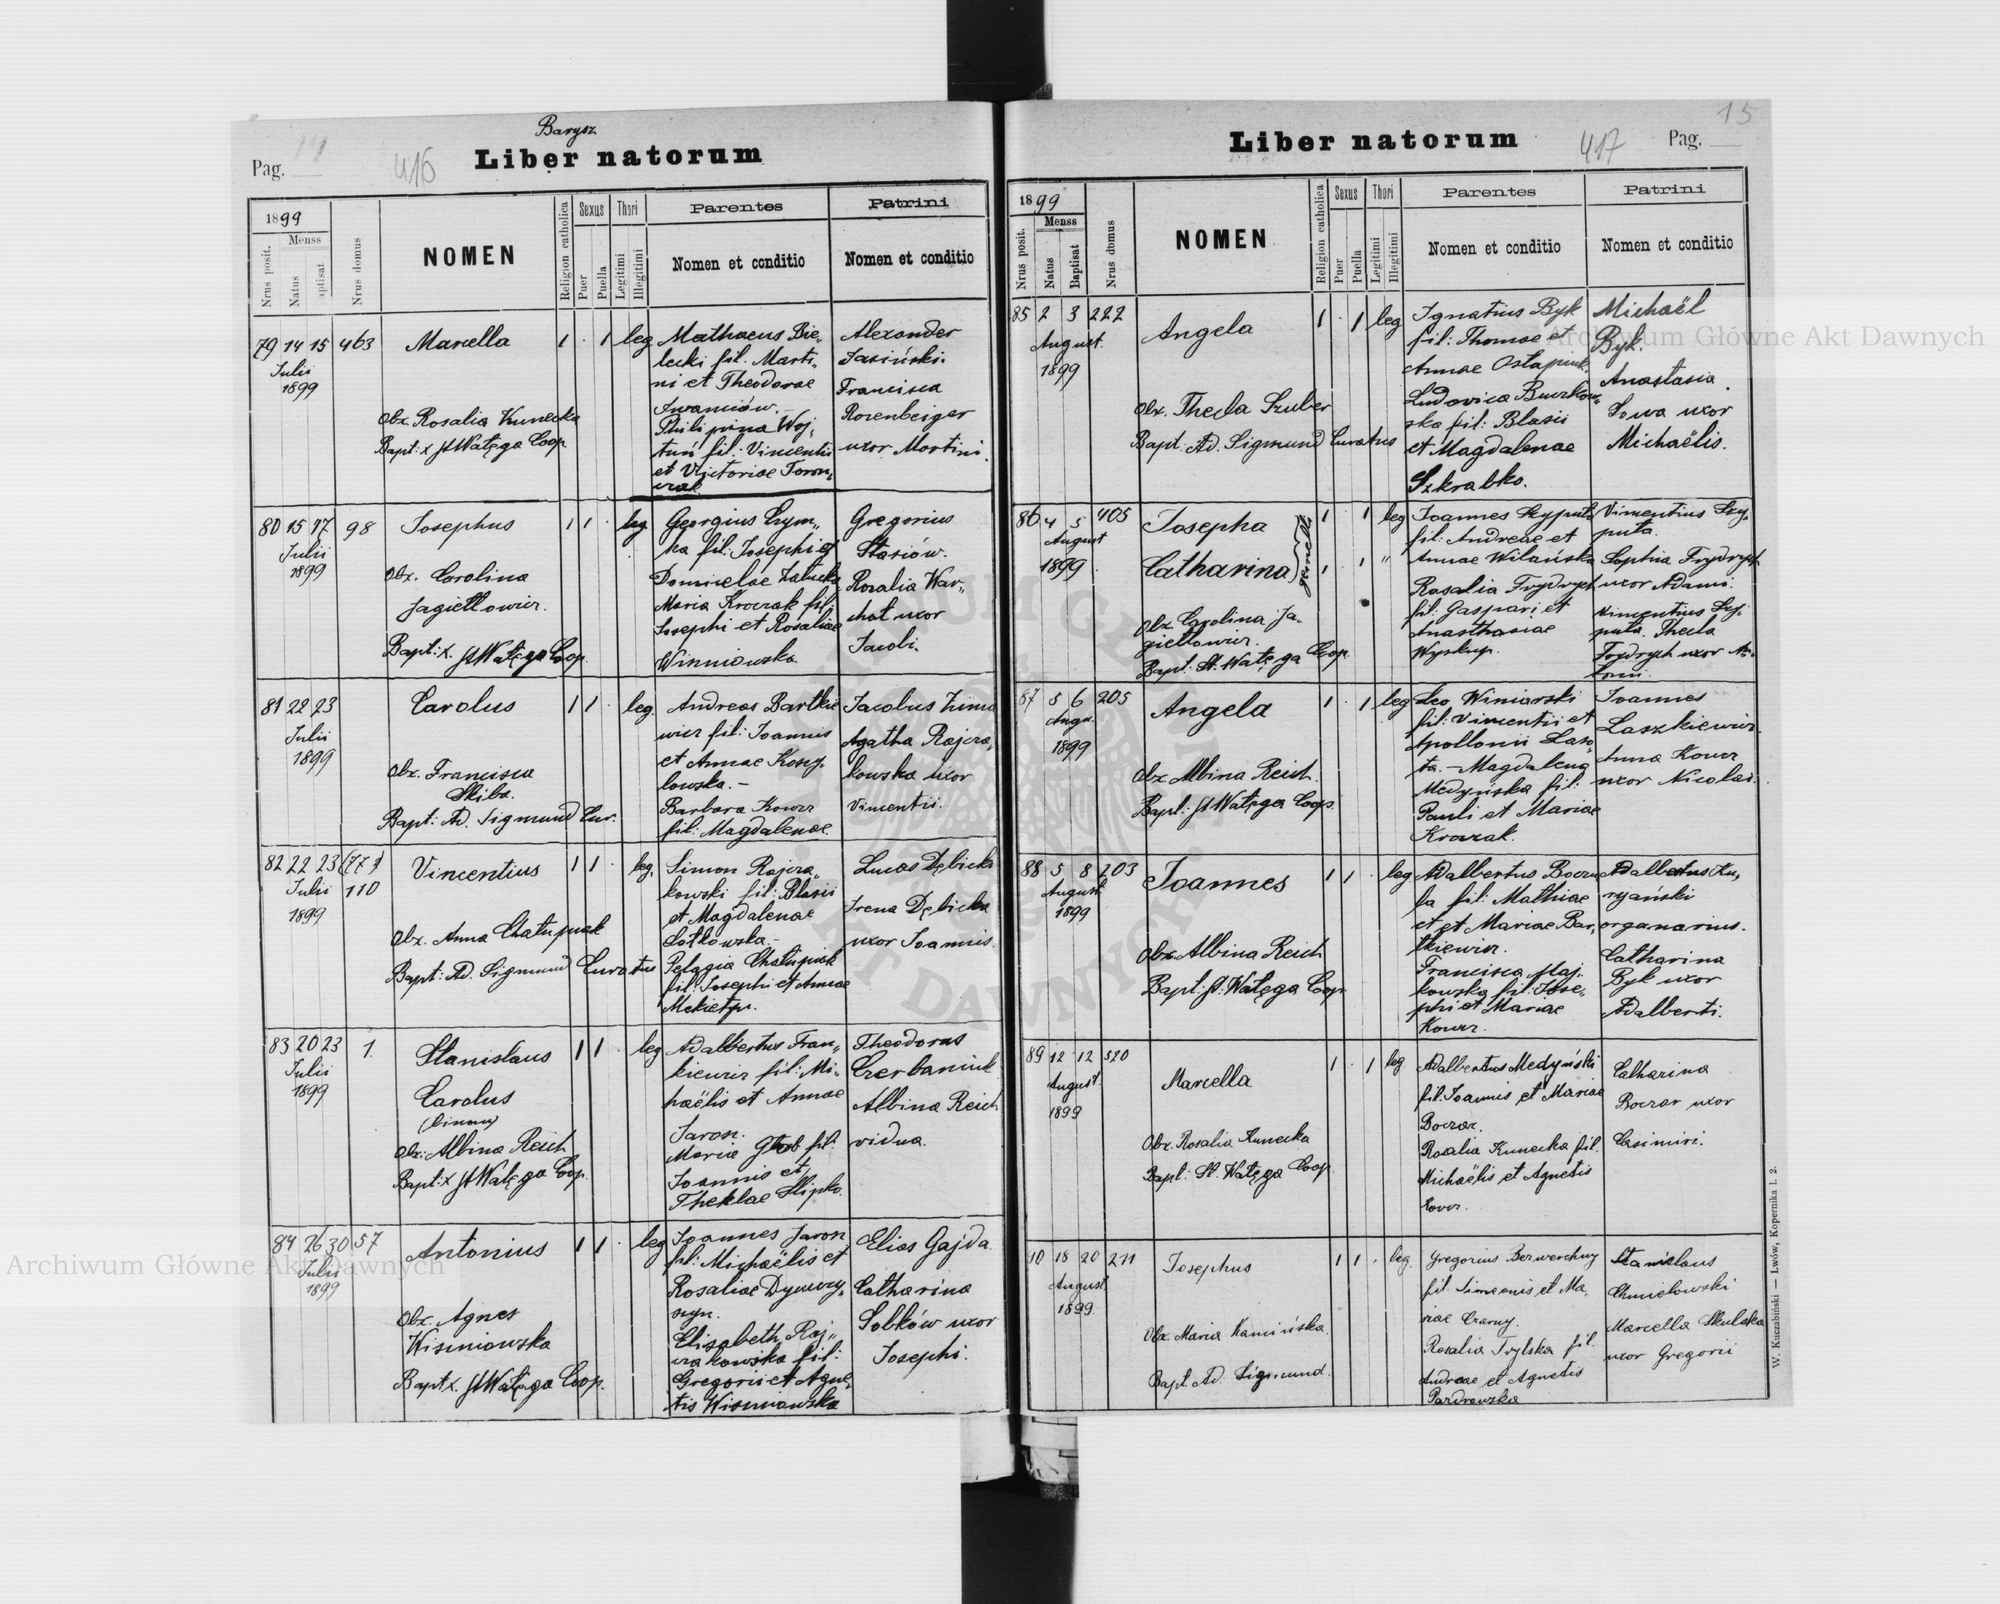 Barysz
Liber natorum
Pag. 14
416
1899
Menss
Nrus posit.
Natus
aptisat
Nrus domus
NOMEN
Religion catholica
Sexus
Puer
Puella
Thori
Legitimi
Illegitimi
Parentes
Nomen et conditio
Patrini
Nomen et conditio
79 14 15 463
Julii
1899
Marcella
Obx. Rosalia Kunecka
Bapt: x St Watęga Coop.
1 . 1 leg
Mathaeus Bie„
lecki fil. Marti„
ni et Theodorae
Iwanciów.
Philipina Woj„
tuń fil: Vincentii
et Victoriae
Alexander
Jasiński.
Francisca
Rozenbeiger
uxor Martini.
80 15 17 98
Julii
1899
Josephus
Obx. Carolina
Jagiełłowicz.
Bapt: x. St Watęga Coop.
1 1 . leg.
Georgius Szym„
ka fil: Josephi et
Domicelae Załucka
Maria Kroczak fil
Josephi et Rosaliae
Wiśniowska
Gregorius
Stasiów.
Rosalia War„
chał uxor
Jacobi.
81 22 23
Julii
1899
Carolus
Obx. Francisca
Skiba.
Bapt: Ad. Sigmund Cur.
1 1 . leg.
Andreas Bartkie
wicz fil: Joannis
et Annae Kosy„
lowska. –
Barbara Kowcz
fil: Magdalenae.
Jacobus Zima
Agatha Rajcza„
kowska uxor
Vincentii.
82 22 23 (773)
Julii 110
1899
Vincentius
Obx. Anna Chałupnak
Bapt: Ad. Sigmund Curatus
1 1 . leg.
Simon Rajcza„
kowski fil: Blasii
et Magdalenae
Sołtowska. –
Pelagia Chałupnak
fil: Josephi et Annae
Lucas Dębicki
Irena Dębicka
uxor Joannis.
83 20 23 1.
Julii
1899
Stanislaus
Carolus
(binom)
Obx: Albina Reich
Bapt: x St Watęga Coop.
1 1 . leg
Adalbertus Fran„
kiewicz fil: Mi„
haëlis et Annae
Jaron.
Maria Głąb fil:
Joannis et
Theklae Slipko.
Theodorus
Czerbaniuk
Albina Reich
vidua.
84 26 30 57
Julii
1899
Antonius
Obx. Agnes
Wiśniowska
Bapt x. St Watęga Coop.
1 1 . leg
Joannes Jaron
fil: Michaëlis et
Rosaliae Dymczy„
szyn.
Elisabeth Raj„
czakowska fil:
Gregorii et Agne„
tis Wiśniowska
Elias Gajda
Catharina
Sobków uxor
Josephi.
Liber natorum
417
Pag. 15
1899
Menss
Nrus posit.
Natus
Baptisat
Nrus domus
NOMEN
Religion catholica
Sexus
Puer
Puella
Thori
Legitimi
Illegitimi
Parentes
Nomen et conditio
Patrini
Nomen et conditio
85 2 3 222
August.
1899
Angela
Obx. Thecla Szuber
Bapt: Ad. Sigmund Curatus
1 . 1 leg
Ignatius Byk
fil: Thomae et
Annae Ostapiuk.
Ludovica Buczkow„
ska fil: Blasii
et Magdalenae
Szkrabko.
Michaël
Byk.
Anastasia
Sowa uxor
Michaëlis.
86 4 5 405
August
1899
Josepha
Catharina
gemelli
Obx. Carolina Ja„
giełłowicz.
Bapt. St. Watęga Coop.
1 . 1 leg
1 . 1 "
Joannes Szypuła
fil: Andreae et
Annae Wilańska
Rosalia Frydrych
fil: Gaspari et
Anasthasiae
Wyskup.
Vincentius Szy„
puła.
Sophia Frydrych
uxor Adami.
Vincentius Szy„
puła. Thecla
Frydrych uxor An„
tonii.
87 5 6 205
Augu.
1899
Angela
Obx Albina Reich.
Bapt: St Watęga Coop.
1 . 1 leg
Leo Winiarski
fil: Vincentii et
Apollonii Laso„
ta. – Magdalena
Medyńska fil:
Pauli et Mariae
Kroczak.
Joannes
Laszkiewicz.
Anna Kowcz
uxor Nicolai.
88 5 8 203
August
1899
Joannes
Obx. Albina Reich
Bapt: St. Watęga Coop
1 1 . leg
Adalbertus Boczu
ła fil: Mathiae
et et Mariae Bar„
tkiewicz.
Francisca Maj„
kowska fil: Jose„
phi et Mariae
Kowcz.
Adalbertus Ku„
ryański
organarius.
Catharina
Byk uxor
Adalberti.
89 12 12 520
August.
1899
Marcella
Obx. Rosalia Kunecka
Bapt: St. Watęga Coop
1 . 1 leg.
Adalbertus Medyński
fil. Joannis et Mariae
Boczar.
Rosalia Kunecka fil.
Michaëlis et Agnetis
Catharina
Boczar uxor
Casimiri.
10 18 20 271
August.
1899.
Josephus
Obx. Maria Kamińska.
Bapt. Ad. Sigmund.
1 1 . leg.
Gregorius Berwerchny
fil. Simeonis et Ma„
riae Czarny.
Rosalia Trylska fil.
Andreae et Agnetis
Pazdrowska
Stanislaus
Chmielowski
Marcella Skulska
uxor Gregorii
W. Kuczabiński — Lwów, Kopernika l. 2.
Archiwum Główne Akt Dawnych
Archiwum Główne Akt Dawnych
ARCHIWUM GŁÓWNE AKT DAWNYCH